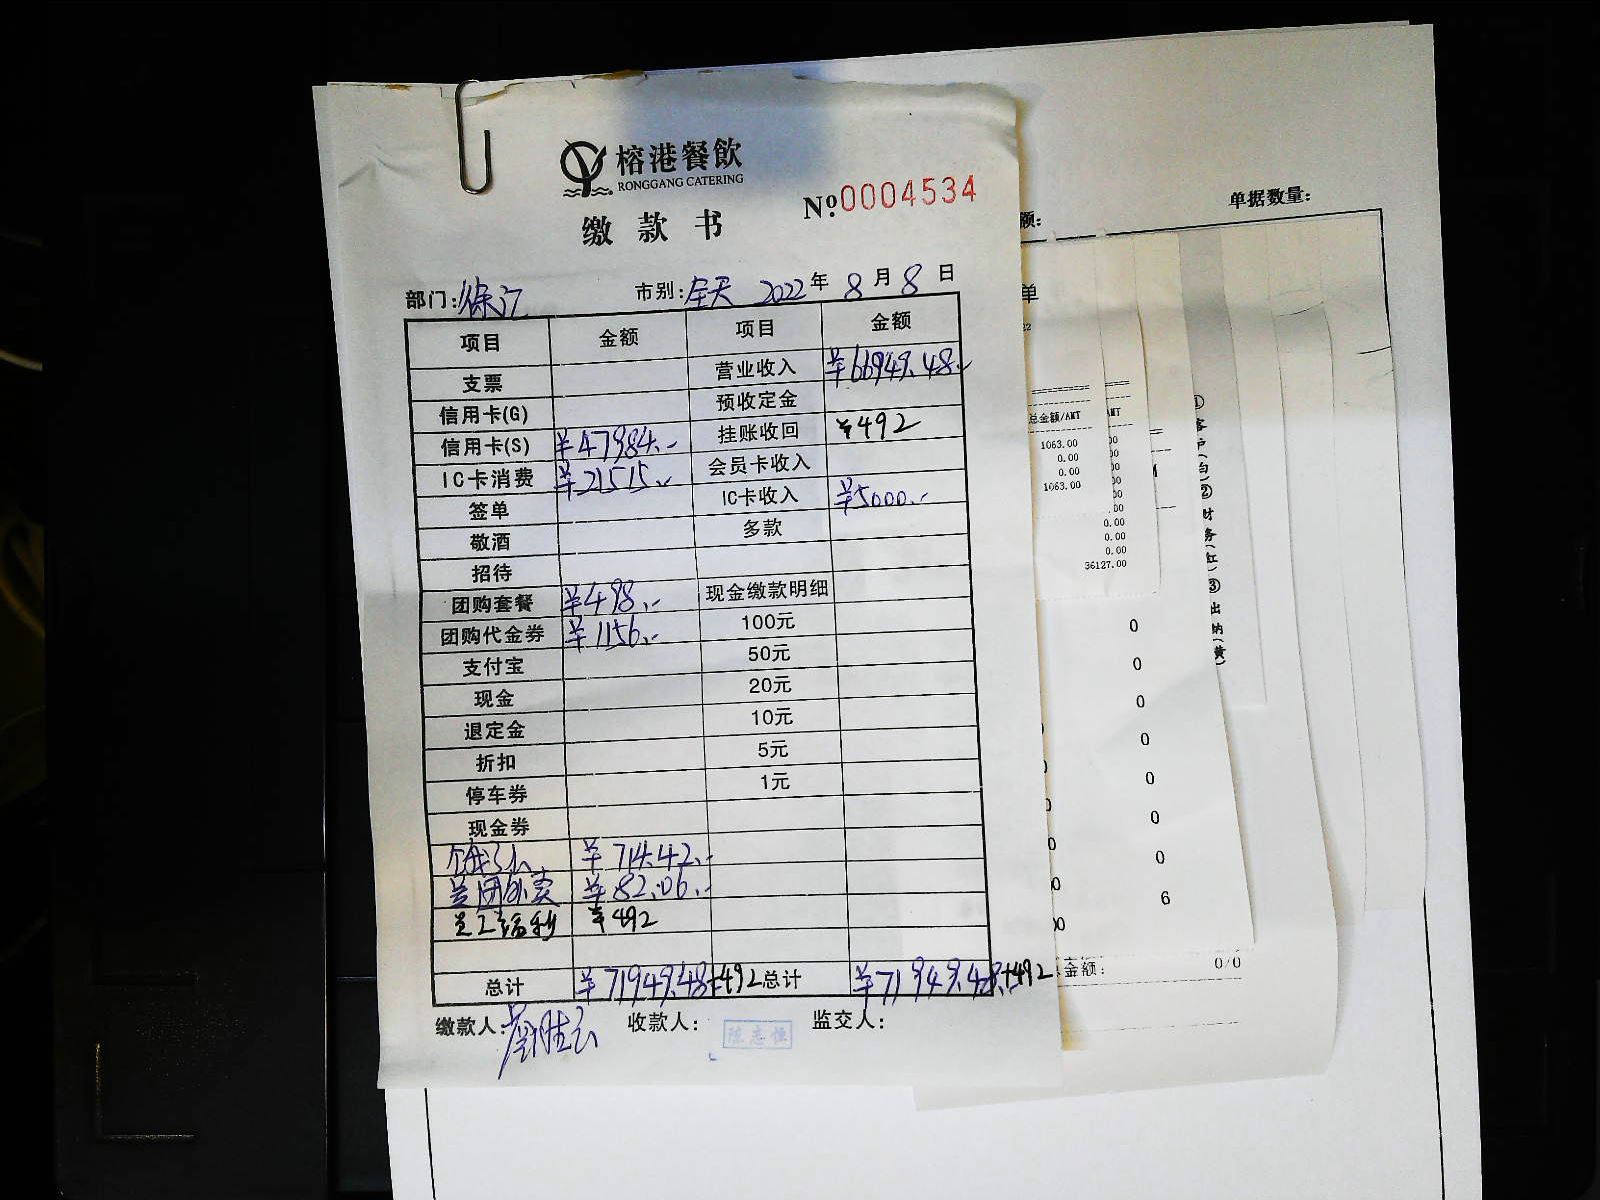 榕港餐飲
RONGGANG CATERING
缴款书
No 0004534
部门:徐汇 市别:全天 2022年8月8日
项目 金额 项目 金额
支票 营业收入 ¥66949.48
信用卡(G) 预收定金
信用卡(S) ¥47984.- 挂账收回 ¥492
IC卡消费 ¥21515.- 会员卡收入
签单 IC卡收入 ¥5000.-
敬酒 多款
招待
团购套餐 ¥498.- 现金缴款明细
团购代金券 ¥1156.- 100元
支付宝 50元
现金 20元
退定金 10元
折扣 5元
停车券 1元
现金券
饿了么 ¥714.42.-
美团外卖 ¥82.06.-
员工福利 ¥492
总计 ¥71949.48+492 总计 ¥71949.48+492
缴款人: 收款人: 陈志恒 监交人:
额:
单据数量:
单
总金额/AMT
1063.00
0.00
0.00
1063.00
0.00
0.00
0.00
36127.00
0
0
0
0
0
0
0
6
金额: 0/0
①客户(白)②财务(红)③出纳(黄)